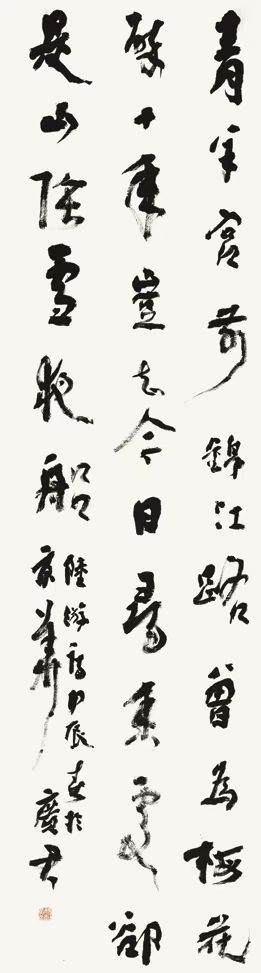 青羊宮前錦江路曾為梅花
醉十年豈知今日尋香處卻
是山陰雪夜船
陸游詩甲辰春於
京華